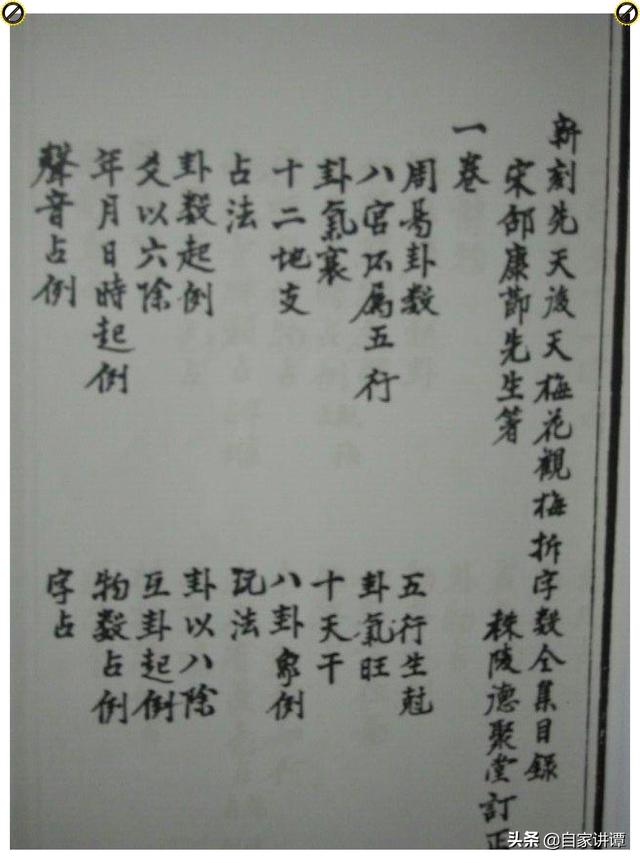 新刻先天後天梅花觀梅折字数全集目録
宋邵康節先生著 秣陵德聚堂訂正
一卷
周易卦数 五行生尅
八宮所属五行 卦氣旺
卦氣衰 十天干
十二地支 八卦象例
占法 玩法
卦数起例 卦以八除
爻以六除 互卦起例
年月日時起例 物数占例
聲音占例 字占
头条 @自家讲谭